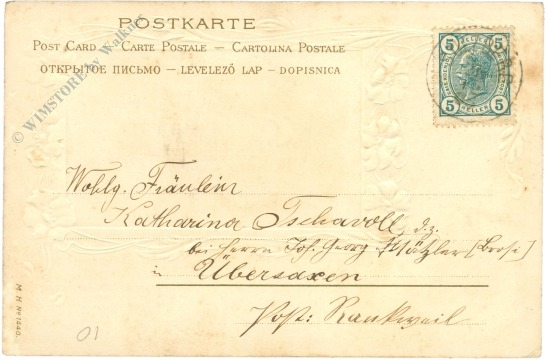 POSTKARTE
POST CARD – CARTE POSTALE – CARTOLINA POSTALE
ОТКРЫТОЕ ПИСЬМО – LEVELEZŐ LAP – DOPISNICA
© WIMSTORE by Walknet
5 5
5 HELLER 5
Wohlg. Fräulein
Katharina Tschavoll, d.z.
bei Herrn Joh. Georg
in Übersaxen
Post: Rankweil
M.H. No 1440.
01